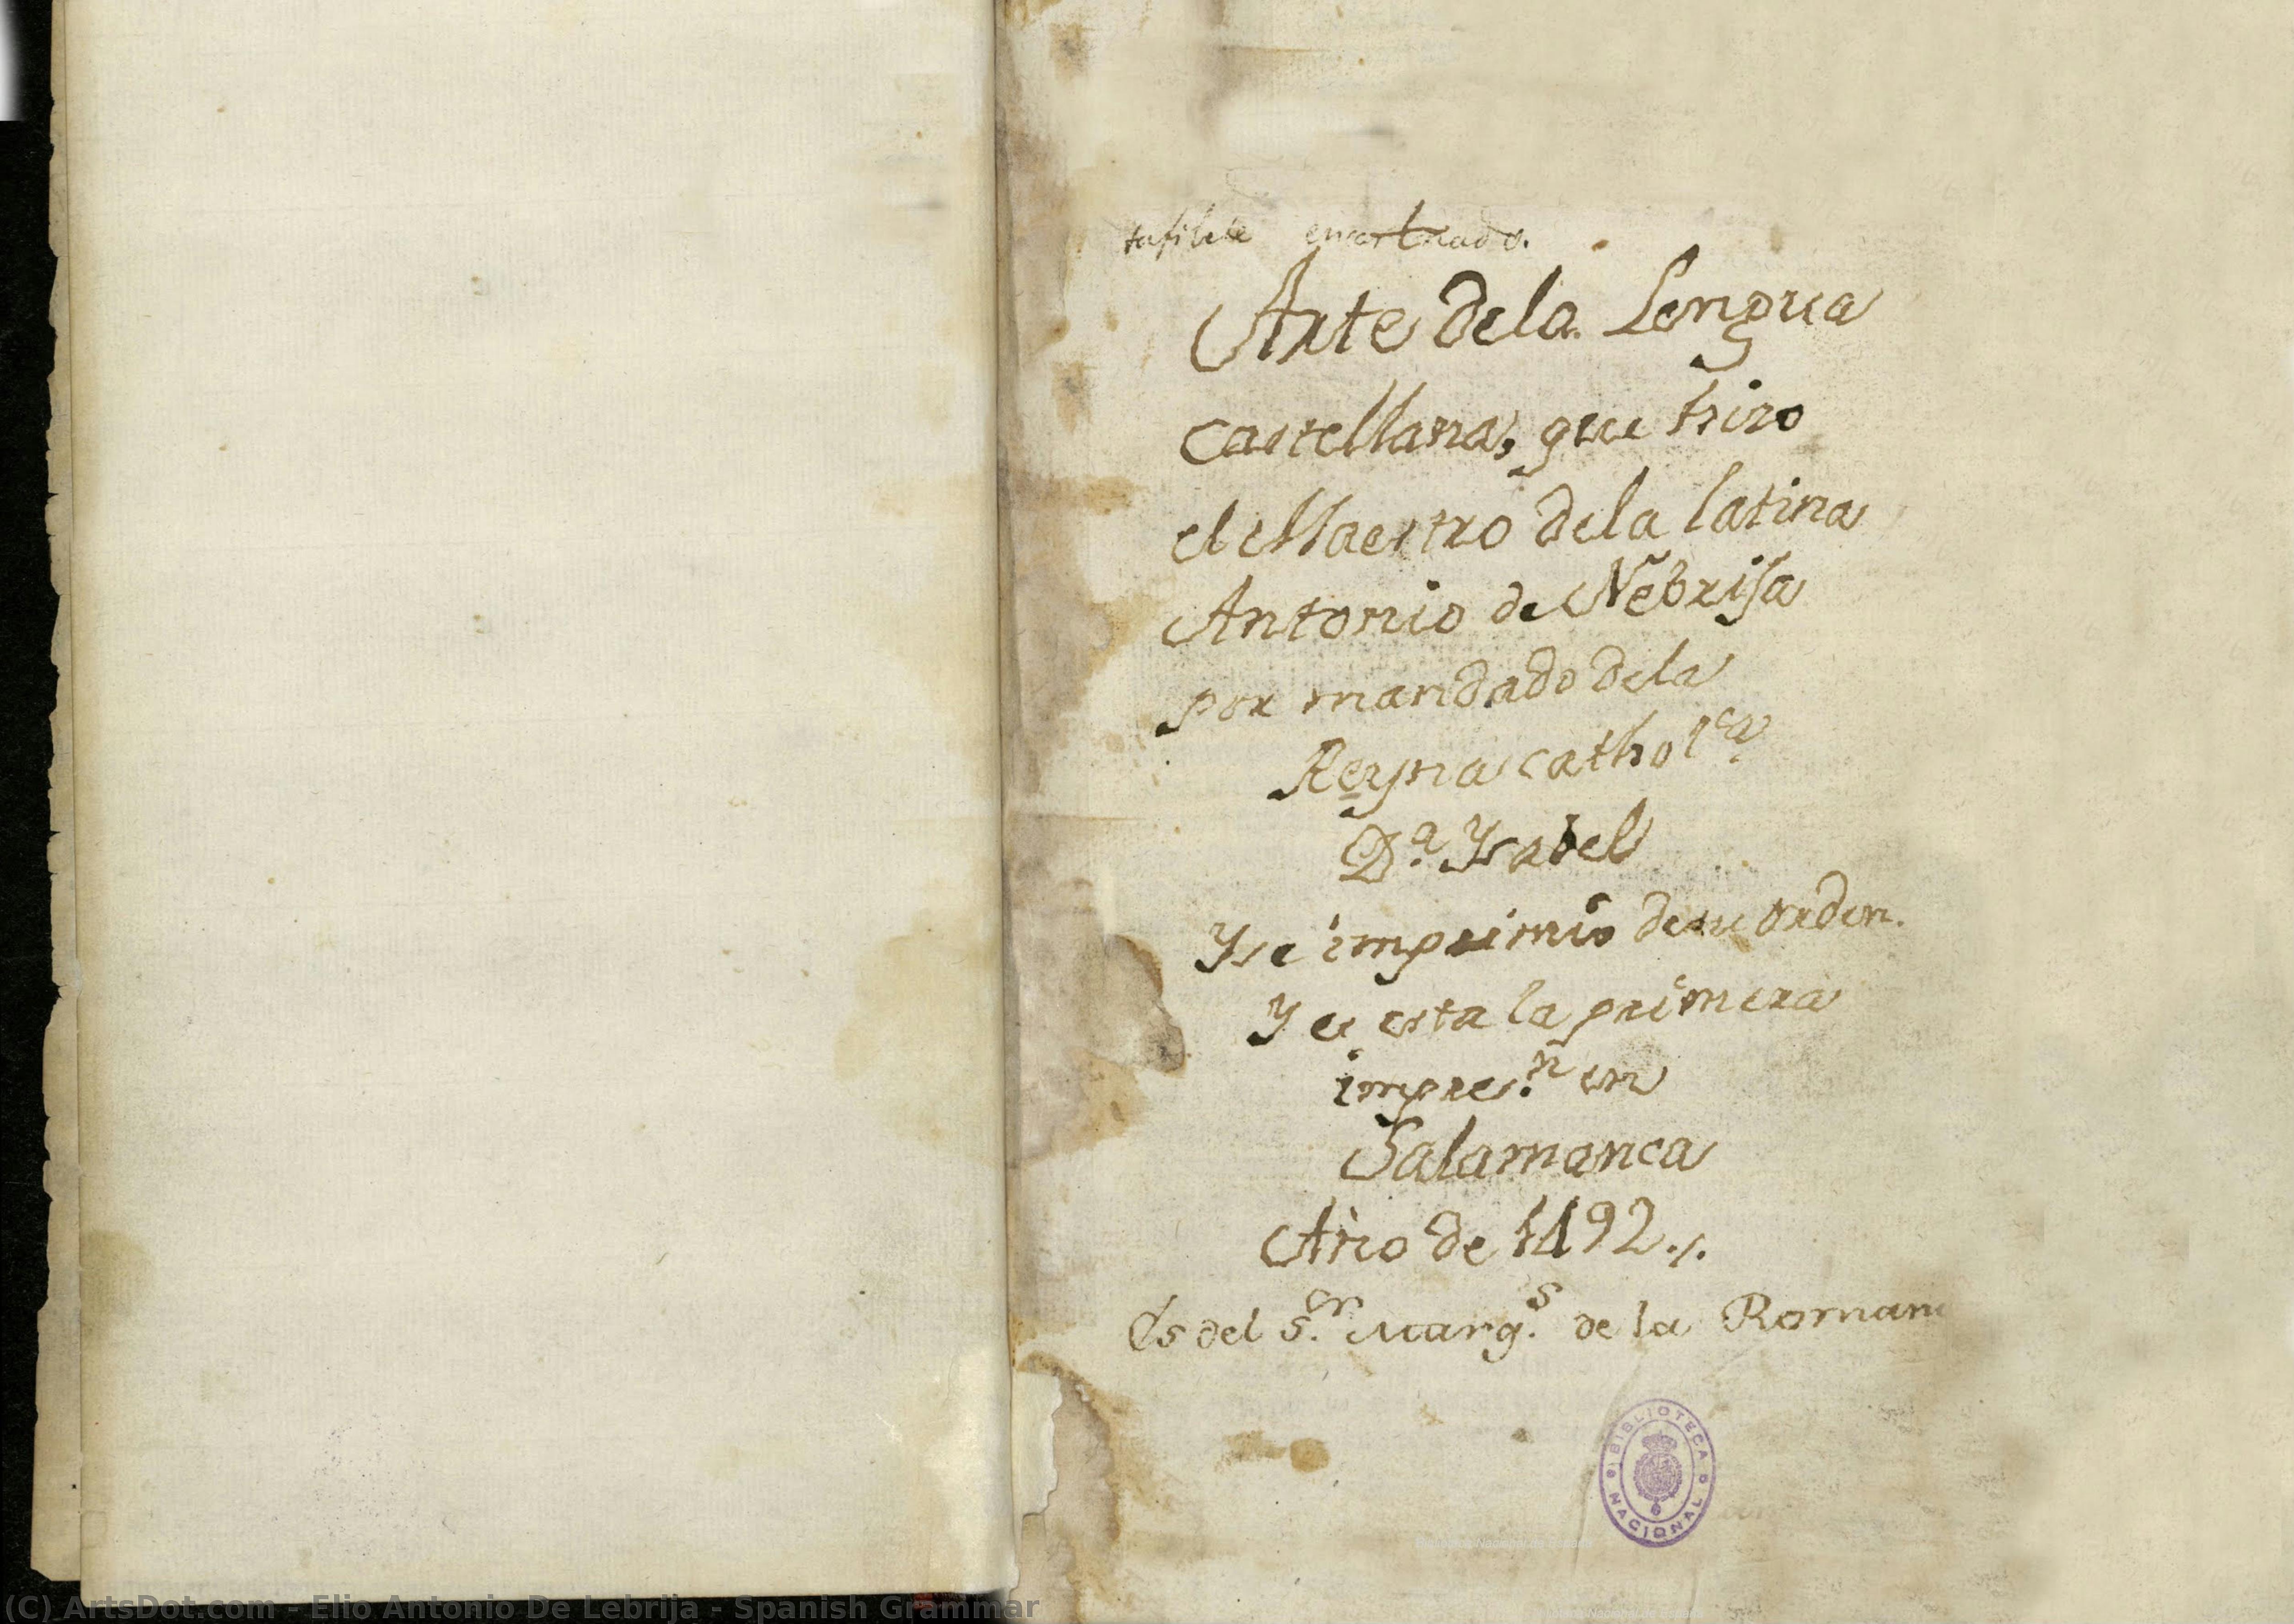 tafilete encartonado.
Arte dela Lengua
Castellana, que hizo
el Maestro dela latina
Antonio de Nebrija
por mandado dela
Reyna cathol.ca
D.a Ysabel
Yse imprimió desu orden.
Y es esta la primera
impres.n en
Salamanca
Año de 1492./.
Es del S.or Marq.s de la Roman
BIBLIOTECA NACIONAL
Biblioteca Nacional de España
Biblioteca Nacional de España
(C) ArtsDot.com - Elio Antonio De Lebrija - Spanish Grammar